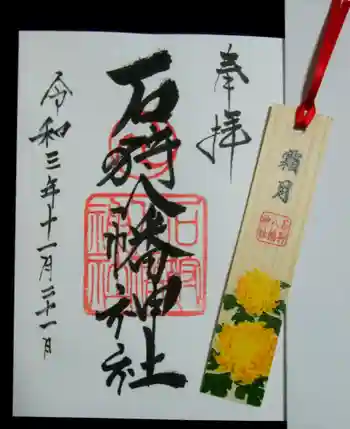 奉拝
石狩八幡神社
令和三年十一月二十一日
霜月